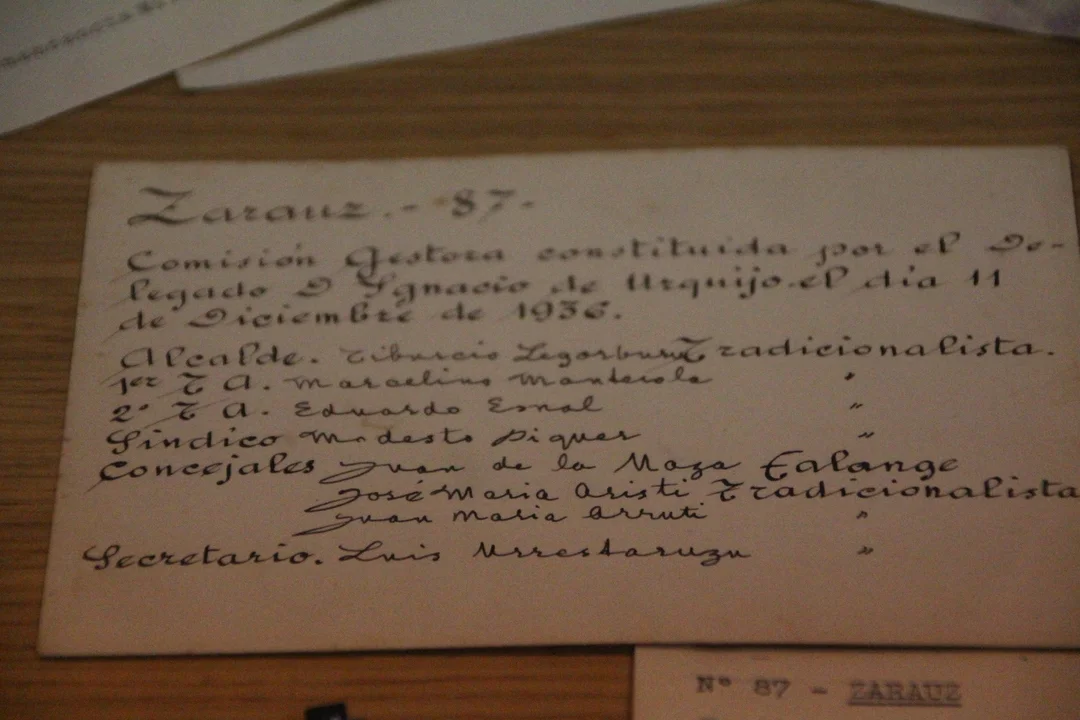 Zarauz.- 87-
Comisión Gestora constituida por el De-
legado D Ygnacio de Urquijo el día 11
de Diciembre de 1936.
Alcalde. Tiburcio Legorburu Tradicionalista.
1er T A. Marcelino Manterola "
2º T A. Eduardo Esnal "
Síndico Modesto Piquer "
Concejales Juan de la Maza Falange
José Maria Aristi Tradicionalista
Juan Maria Arruti "
Secretario. Luis Urrestarazu "
Nº 87 - ZARAUZ